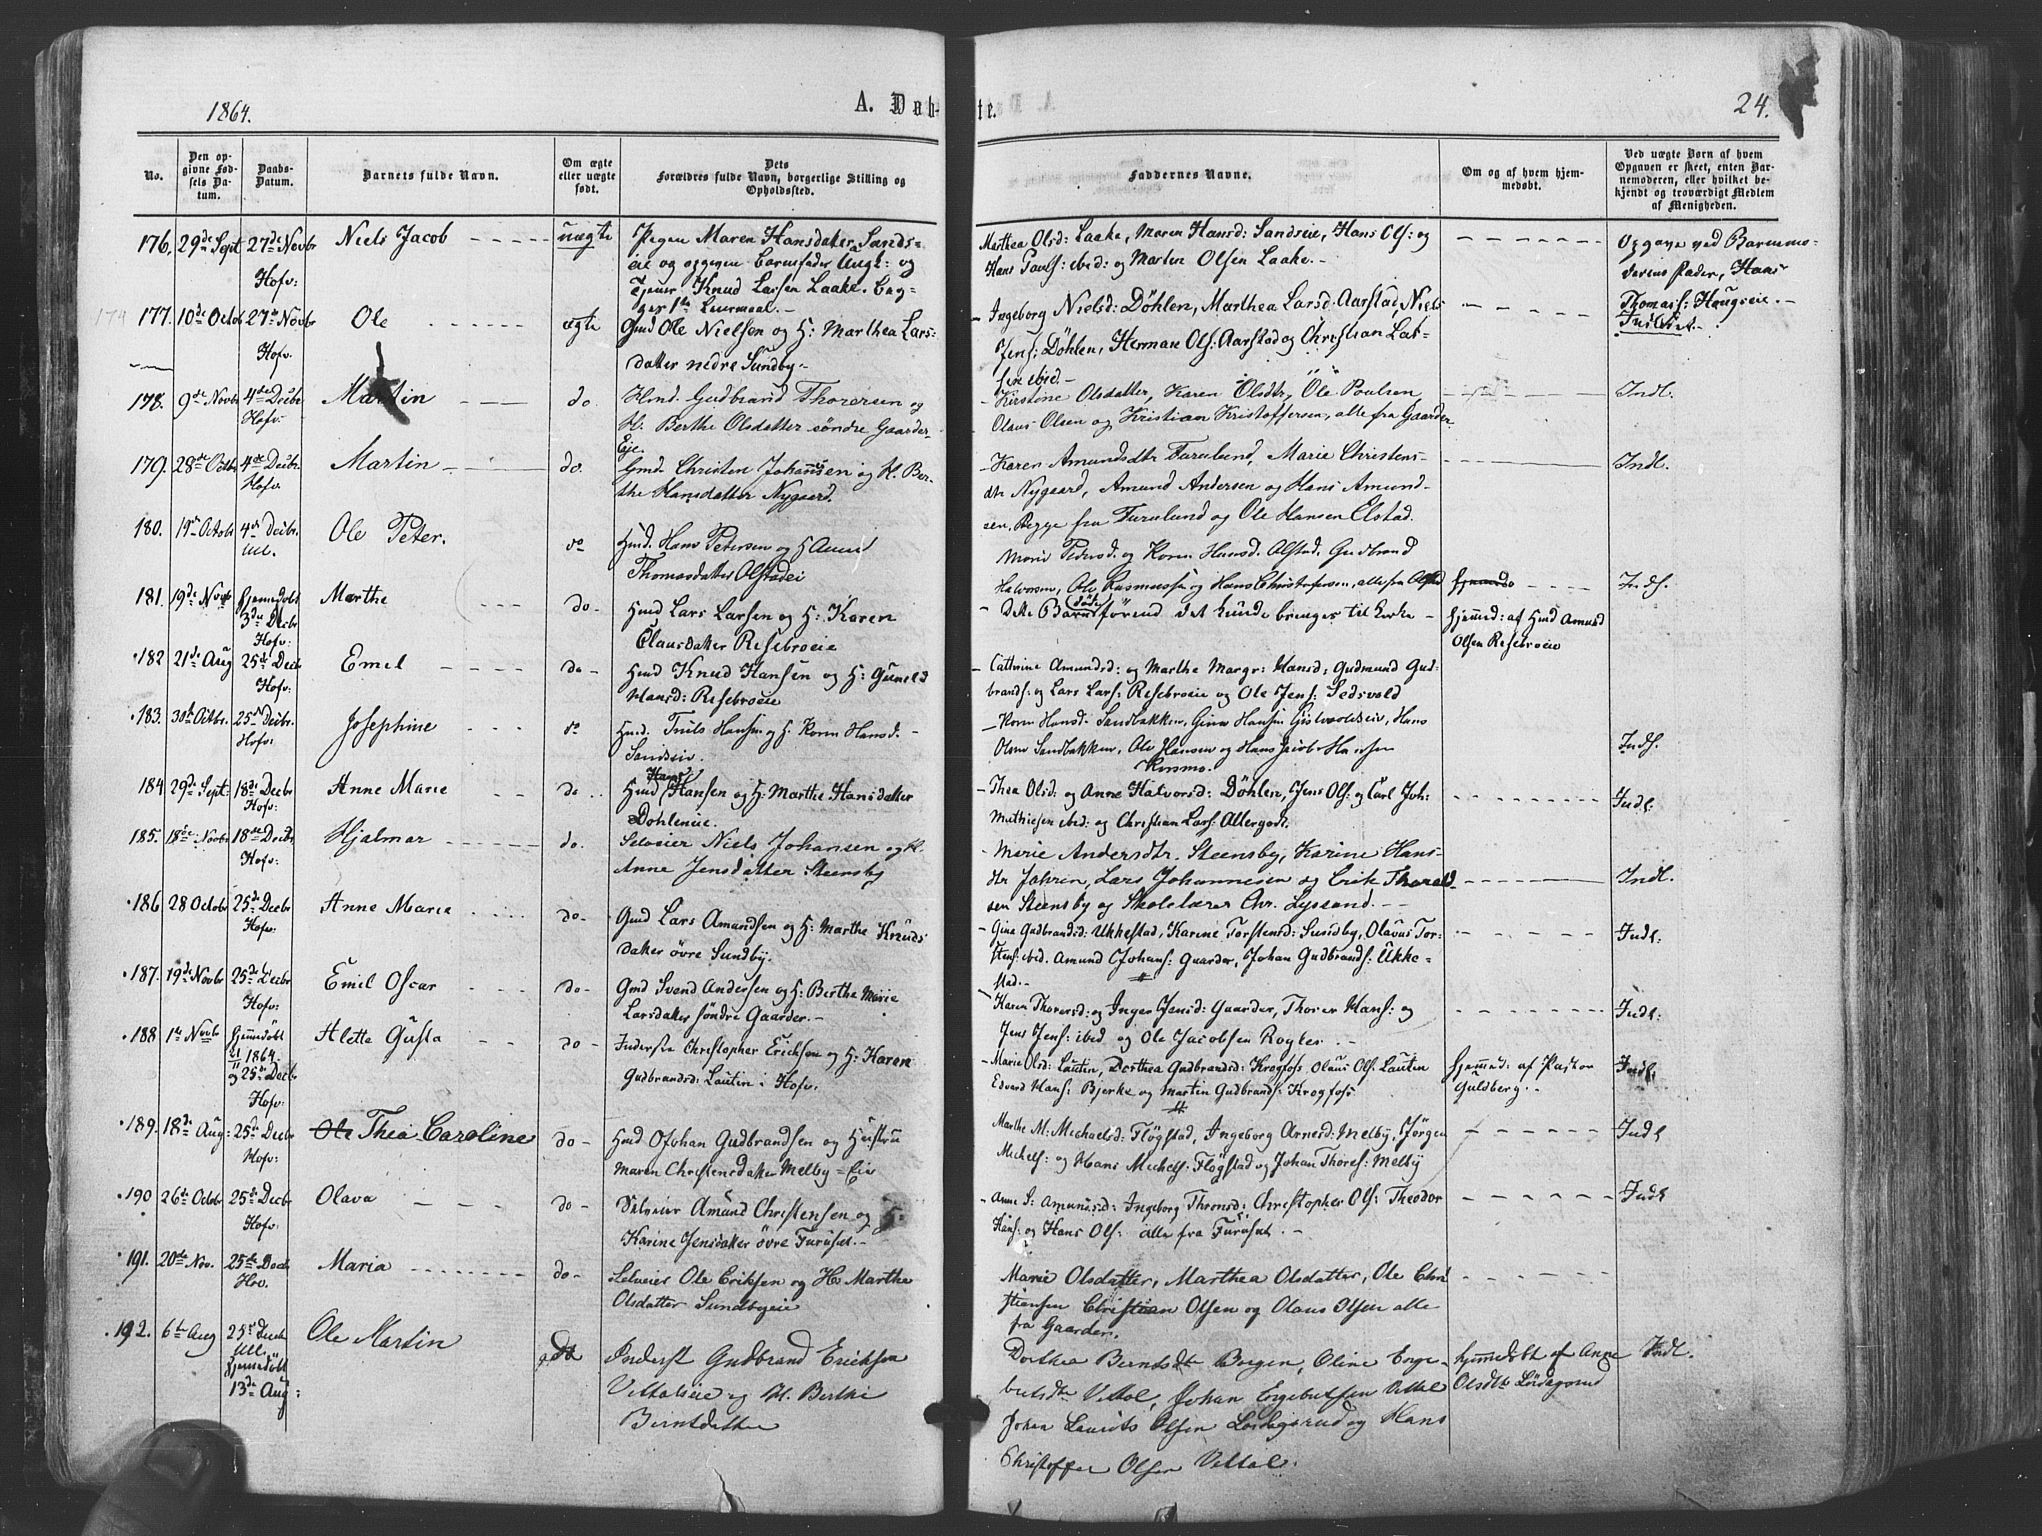 1864.
A. Dåb-
te.
24.
No.
Den op-
givne Fød-
sels Da-
tum.
Daabs-
Datum.
Barnets fulde Navn.
Om ægte
eller uægte
født.
Dets
Forældres fulde Navn, borgerlige Stilling og
Opholdssted.
Faddernes Navne.
Om og af hvem hjem-
medøbt.
Ved uægte Børn af hvem
Opgaven er skeet, enten Bar-
nemoderen, eller hvilket be-
kjendt og troværdigt Medlem
af Menigheden.
176. 29de Sept 27de Novbr Niels Jacob uægte Pigen Maren Hansdatter Sands=
Hofv: eie og opgiven Barnefader Ungk: og
Tjener Knud Larsen Laake. Beg-
ges 1ste Leiermaal.
Marthea Olsd: Laake, Maren Hansd: Sandseie, Hans Ols: og
Hans Pauls: ibid: og Marten Olsen Laake.
Opgave ved Barnemo-
derens Fader, Hans
Thomas: Haugseie.
Indført.
174
177. 10de Octob 27de Novbr Ole ægte Gmd Ole Nielsen og H: Marthea Lars-
Hofv: datter nedre Sundby
Ingeborg Nielsd: Döhlen, Marthea Larsd: Aarstad, Niels
Jens: Döhlen, Herman Ols: Aarstad og Christian Lar-
sen ibid.
178. 9de Novbr 4de Decbr Hofv: Martin do. Hmd. Gudbrand Thorersen og
H. Berthe Olsdatter søndre Gaarder-
Eie.
Kirstine Olsdatter, Karen Olsdtr, Ole Poulsen,
Olaus Olsen og Kristian Kristoffersen, alle fra Gaarder
Indl.
179. 28de Octbr 4de Decbr Hofv. Martin do. Gmd. Christen Johannsen og H. Ber-
the Hansdatter Nygaard.
Karen Amundsdtr Furulund, Marie Christens-
dtr Nygaard, Amund Andersen og Hans Amund-
sen, Begge fra Furulund og Ole Hansen Elstad.
Indl.
180. 19de Octobr 4de Decbr. Ull. Ole Peter. do Hmd. Hans Petersen og H
Thomasdatter Olstadei
Marie Pedersd. og Karen Hansd. Olstad, Gudbrand
Halvorsen, Ole Rasmussen og Hans Christofersen, alle fra Olstad
Indf.
181. 19de Novbr Hjemmedøbt
3de Decbr Hofv: Marthe do Hmd Lars Larsen og H: Karen
Olausdatter Risebroeie
Dette Barn døde førend det kunde bringes til Kirke
Hjemmed: af Hmd Amund
Olsen Risebroeie
182 21de Aug 25de Decbr Hofv: Emil do Hmd Knud Hansen og H: Gunild
Hansd: Risebroeie
Cathrine Amundsd: og Marthe Margr: Hansd: Gudmund Gud-
brands: og Lars Lars: Risebroeie og Ole Jens: Sedsvold
183. 30te Octbr. 25de Decbr. Hofv: Josephine do Hmd. Truls Hansen og H. Karen Hansd.
Sandseie.
Karen Hansd. Sandbakken, Gina Hansen Gislevoldseie, Hans
Olsen Sandbakken, Ole Hansen og Hans Jacob Hansen
Kosmo.
Indf.
184 29de Sept: 18de Decbr Hofv: Anne Marie do Hmd Hans Hansen og H: Marthe Hansdatter
Dohleneie.
Thea Olsd: og Anne Halvorsd: Döhlen, Jens Ols: og Carl Joh:
Mathiesen ibid: og Christian Lars: Allergodt.
Indl:
185. 18de Novbr 18de Decbr Hofv: Hjalmar do. Selveier Niels Johansen og H.
Anne Jensdatter Steensby
Marie Andersdtr. Steensby, Karine Hans-
dtr Jahren, Lars Johannesen og Erik Thorald
sen Steensby og Skolelærer Chr. Lyssand.
Indl.
186 28 Octobr 25de Decbr Hofv: Anne Maria do Gmd Lars Amundsen og H: Marthe Knuds
datter øvre Sundby.
Gina Gudbrandsd: Ukkestad, Karine Torstensd: Sundby, Olavus Tor-
stens: ibid. Amund Johans: Gaarder, Johan Gudbrands: Ukke-
stad.
Indl:
187. 19de Novbr 25de Decbr Hofv: Emil Oscar do Gmd Svend Andersen og H: Berthe Marie
Larsdatter søndre Gaarder.
Karen Thorersd: og Inger Jensd: Gaarder, Thorer Hans: og
Jens Jens: ibid og Ole Jacobsen Rogter
Indl:
188 1ste Novb Hjemmedöbt
21/11 1864.
og 25de Decbr
Hofv: Alette Gusta do Inderste Christopher Ericksen og H: Karen
Gudbrandsd: Lautin i Hofv.
Marie Olsd: Lautin, Dorthea Gudbrandsd: Krogfoss, Olaus Ols: Lautin
Edvard Hans: Bjerke og Martin Gudbrands: Krogfoss
Hjemmed: af Pastor
Guldberg.
Indl:
189. 18de Aug: 25de Decbr Hofv: Ole Thea Caroline do Hmd Johan Gudbrandsen og Hustru
Maren Christensdatter Melby=Eie
Marthe M: Michaelsd: Flögstad, Ingeborg Arnesd: Melby, Jörgen
Michels: og Hans Michels: Flögstad og Johan Thores: Melby
Indl
190 26de Octobr 25de Decbr Hofv: Olava do Selveier Amund Christensen og H:
Karine Jensdatter øvre Furuset
Anne S: Amundsd: Ingeborg Thronsd: Christopher Ols: Theodor
Hans: og Hans Ols: alle fra Furuset.
Indl
191. 20de Nov. 25de Decb. Hov. Maria do Selveier Ole Eriksen og H. Marthe
Olsdatter Sundbyeie
Marie Olsdatter, Marthea Olsdatter, Ole Chri
stiansen Christian Olsen og Olaus Olsen alle
fra Gaarder.
192. 6te Aug 25de Decb
Ull.
Hjemmedöbt
13de Aug: Ole Martin do Inderst Gudbrand Ericksen
Vettaleie og H. Berthe
Berntsdatter
Dorthea Berntsdtr Borgen, Oline Enge-
bretsdtr Vettal, Johan Engebretsen Vettal
Johan Laurits Olsen Lordagsrud og Hans
Christoffer Olsen Vettal.
hjemmedöbt af Anne
Olsdtr Lördagsrud
Indl.